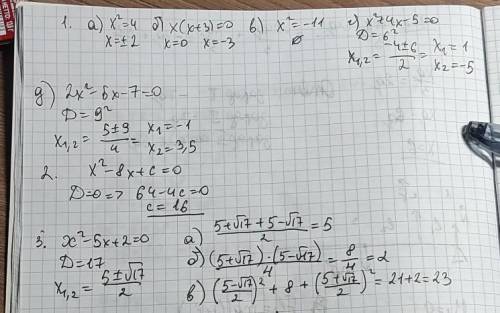 1. а) x²=4 б) x(x+3)=0 в) x²=-11 г) x²+4x-5=0
x=±2 x=0 x=-3 ∅ D=6²
x₁,₂ = (-4±6)/2 = x₁=1 x₂=-5
д) 2x²-5x-7=0
D=9²
x₁,₂ = (5±9)/4 = x₁=-1 x₂=3,5
2. x²-8x+c=0
D=0 => 64-4c=0
c=16
3. x²-5x+2=0 а) (5+√17+5-√17)/2 = 5
D=17 б) (5+√17)·(5-√17)/4 = 8/4 = 2
x₁,₂ = (5±√17)/2
в) ((5-√17)/2)² + 8 + ((5+√17)/2)² = 21+2=23